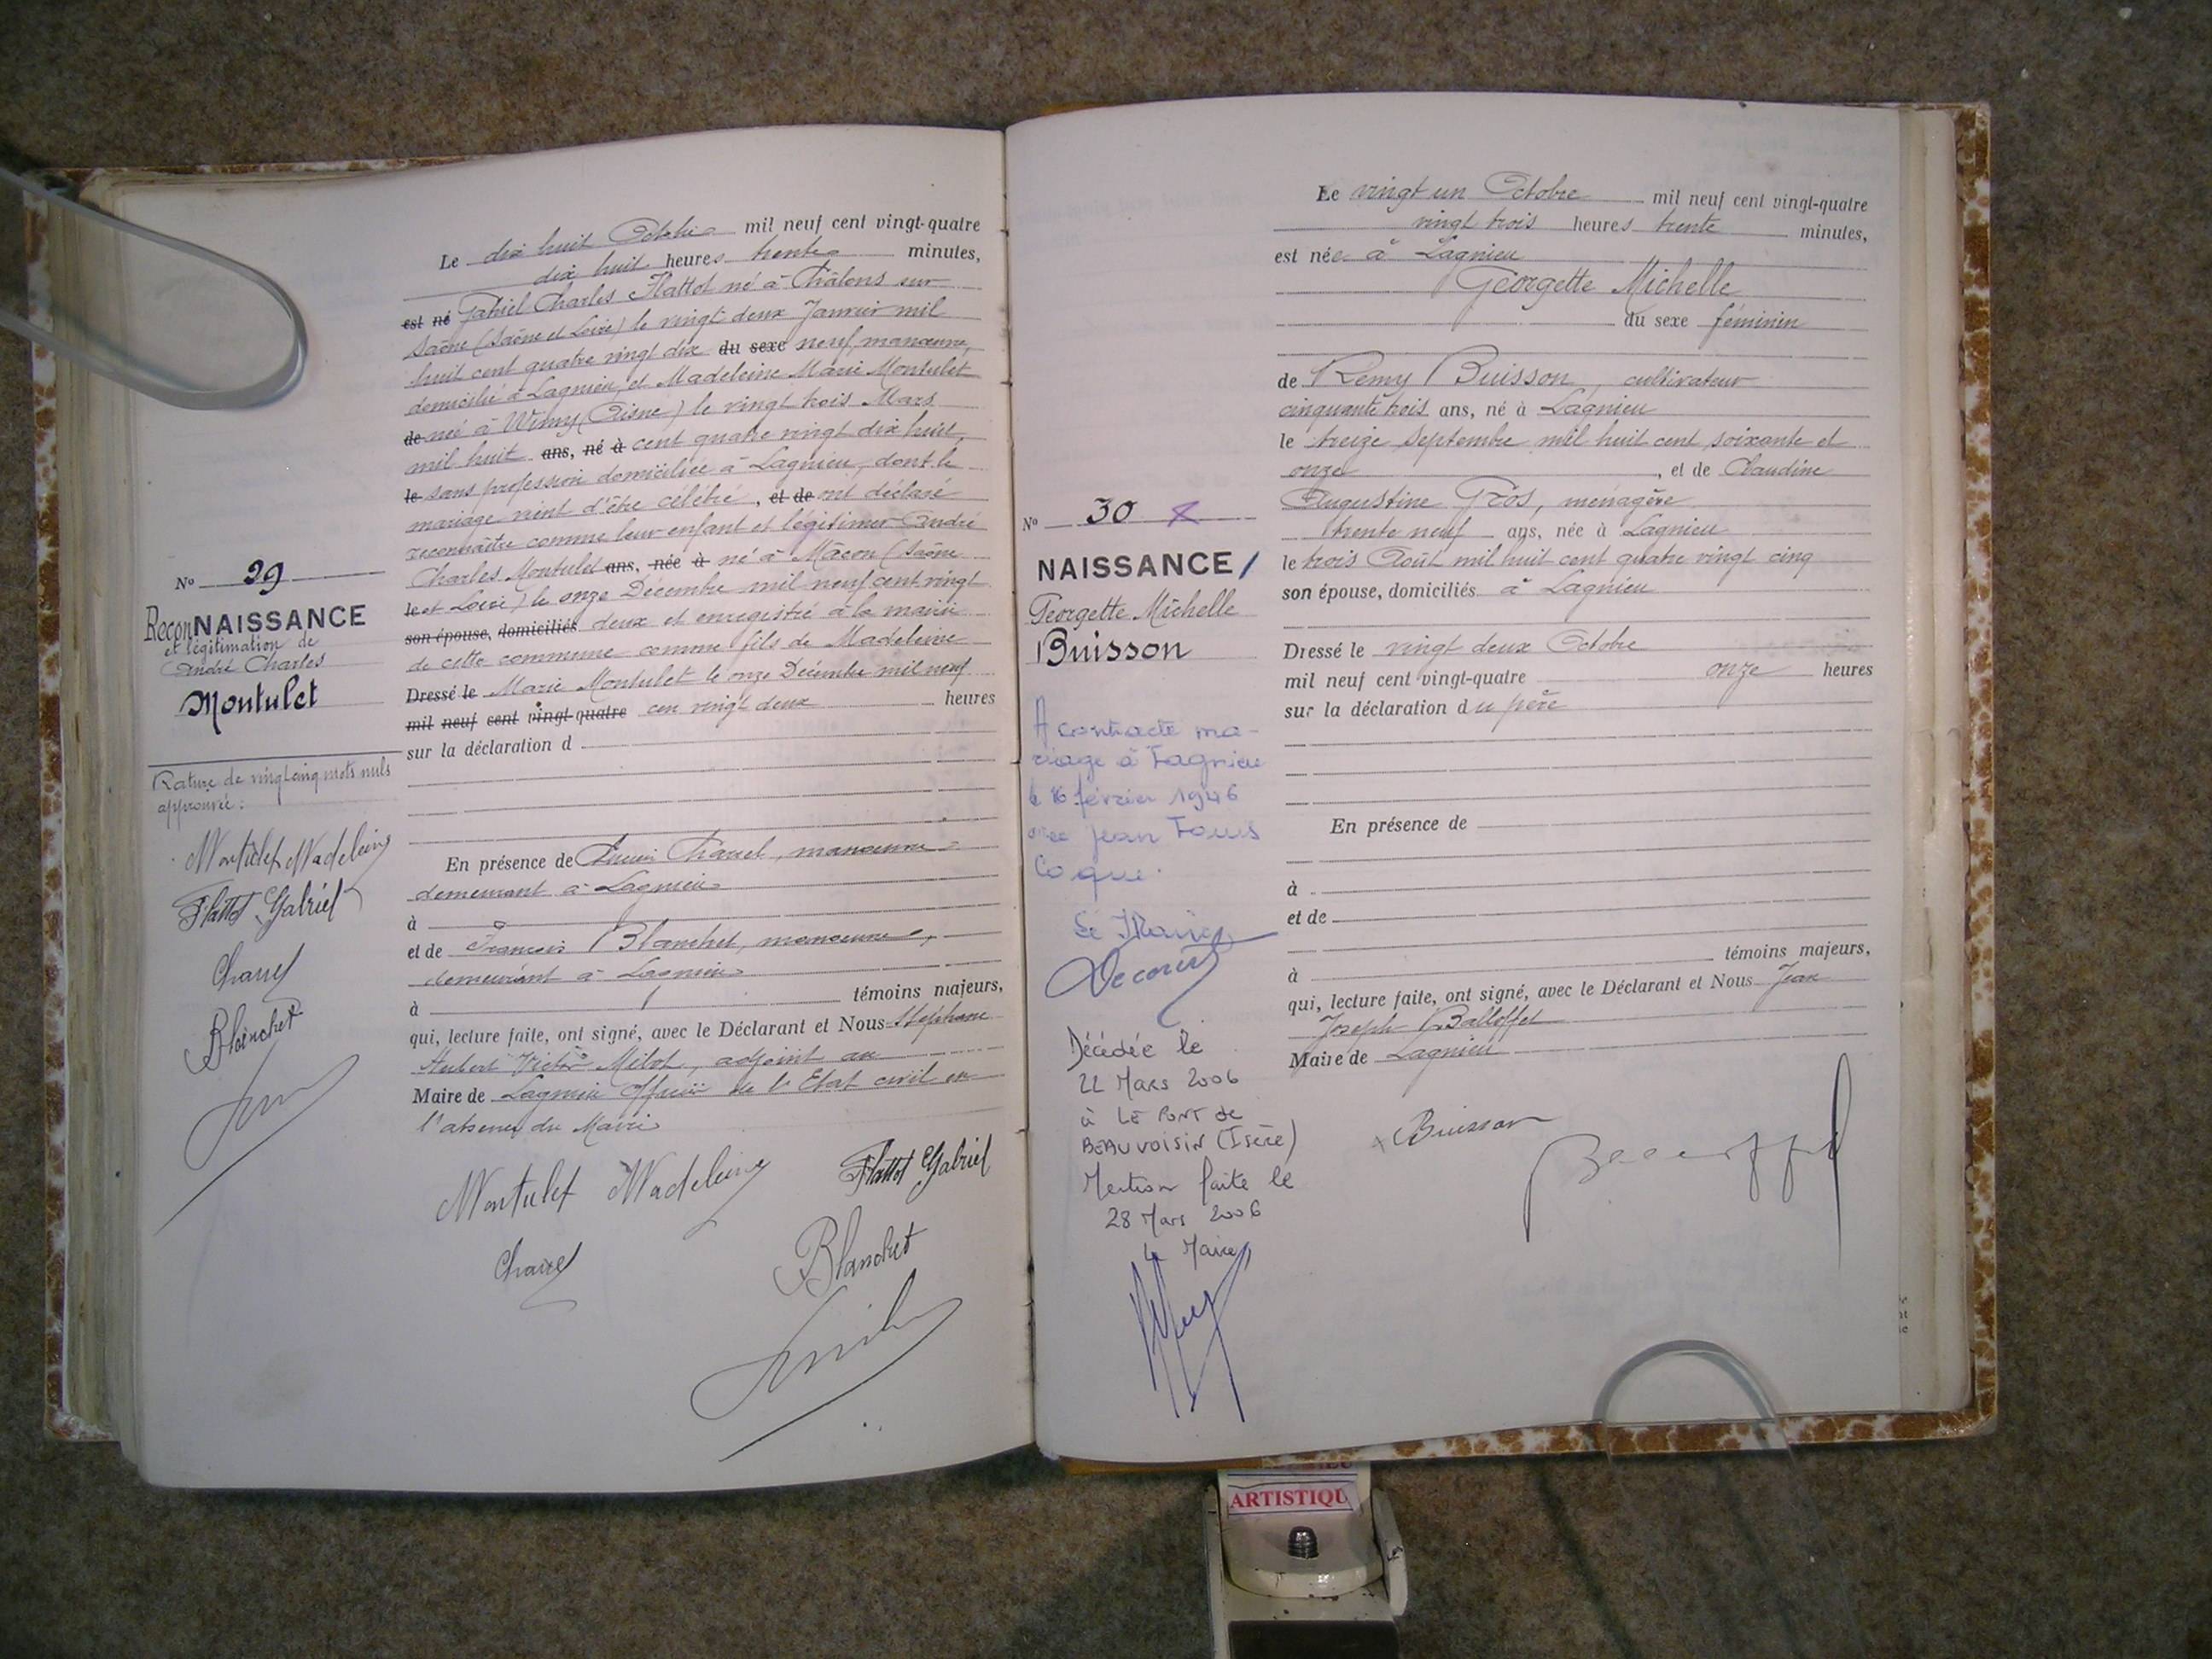 Le dix huit Octobre mil neuf cent vingt-quatre
dix huit heures trente minutes,
est né Gabriel Charles Flattot né à Châlons sur
Saône (Saône et Loire) le vingt deux Janvier mil
huit cent quatre vingt dix du sexe neuf, manœuvre,
domicilié à Lagnieu, et Madeleine Marie Montulet
de née à Wimy (Aisne) le vingt trois Mars
mil huit ans, né à cent quatre vingt dix huit,
le sans profession domiciliée à Lagnieu, dont le
mariage vient d'être célébré, et de ont déclaré
reconnaître comme leur enfant et légitimer André
Charles Montulet ans, née à né à Mâcon (Saône
le et Loire) le onze Décembre mil neuf cent vingt
son épouse, domiciliés deux et enregistré à la mairie
de cette commune comme fils de Madeleine
Dressé le Marie Montulet le onze Décembre mil neuf
mil neuf cent vingt-quatre cen vingt deux heures
sur la déclaration d
En présence de Charvet, manœuvre
demeurant à Lagnieu
à
et de François Blanchet, manœuvre,
demeurant à Lagnieu
à témoins majeurs,
qui, lecture faite, ont signé, avec le Déclarant et Nous Stéphane
Hubert Victor Milot, adjoint au
Maire de Lagnieu Officier de l'Etat civil en
l'absence du Maire
Montulet Madeleine
Flattot Gabriel
Charvet
Blanchet
No 29
ReconNAISSANCE
et légitimation de
André Charles
Montulet
Rature de vingt cinq mots nuls
approuvée :
Montulet Madeleine
Flattot Gabriel
Charvet
Blanchet
No 30
NAISSANCE
Georgette Michelle
Buisson
A contracté ma-
riage à Lagnieu
le 16 février 1946
avec Jean Louis
Coque.
Le Maire
Décédée le
22 Mars 2006
à LE PONT de
BEAUVOISIN (Isère)
Mention faite le
28 Mars 2006
Le Maire
Le vingt un Octobre mil neuf cent vingt-quatre
vingt trois heures trente minutes,
est née à Lagnieu
Georgette Michelle
du sexe féminin
de Rémy Buisson, cultivateur
cinquante trois ans, né à Lagnieu
le treize Septembre mil huit cent soixante et
onze, et de Claudine
Augustine Gros, ménagère
trente neuf ans, née à Lagnieu
le trois Août mil huit cent quatre vingt cinq
son épouse, domiciliés à Lagnieu
Dressé le vingt deux Octobre
mil neuf cent vingt-quatre onze heures
sur la déclaration du père
En présence de
à
et de
témoins majeurs,
à
qui, lecture faite, ont signé, avec le Déclarant et Nous Jean
Joseph Balloffet
Maire de Lagnieu
Buisson
Balloffet
ARTISTIQU